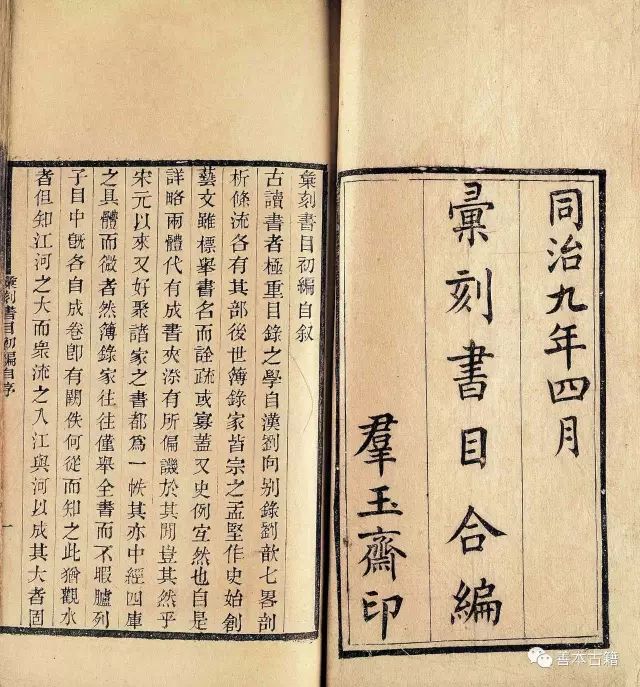 同治九年四月
彙刻書目合編
羣玉齋印
彙刻書目初編自叙
古讀書者極重目錄之學自漢劉向别錄劉歆七畧剖
析條流各有其部後世簿錄家皆宗之孟堅作史始創
藝文雖標舉書名而詮疏或寡蓋又史例宜然也自是
詳略兩體代有成書夾漈有所偏譏於其閒豈其然乎
宋元以來又好聚諸家之書都爲一帙其亦中經四庫
之具體而微者然薄錄家往往僅舉全書而不暇臚列
子目中旣各自成卷卽有闕佚何從而知之此猶觀水
者但知江河之大而衆流之入江與河以成其大者固
彙刻書目初編自序
一
善本古籍